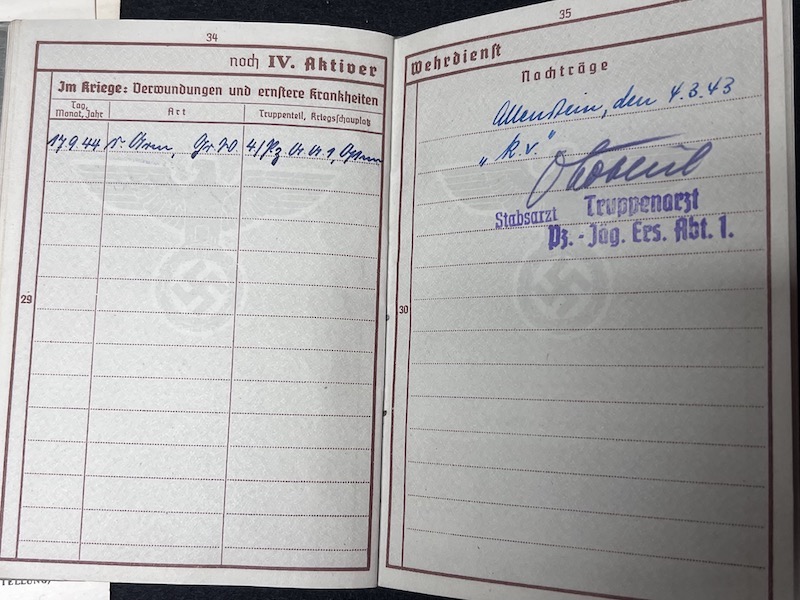 34
noch IV. Aktiver
Im Kriege: Verwundungen und ernstere Krankheiten
Tag, Monat, Jahr
Art
Truppenteil, Kriegsschauplatz
17 9 44 r. Arm, 4/Pz A A 1,
29
35
Wehrdienst
Nachträge
Allenstein, den 4.3.43
"k.v."
Stabsarzt Truppenarzt
Pz.-Jag. Ers. Abt. 1.
30
TELLUNG/